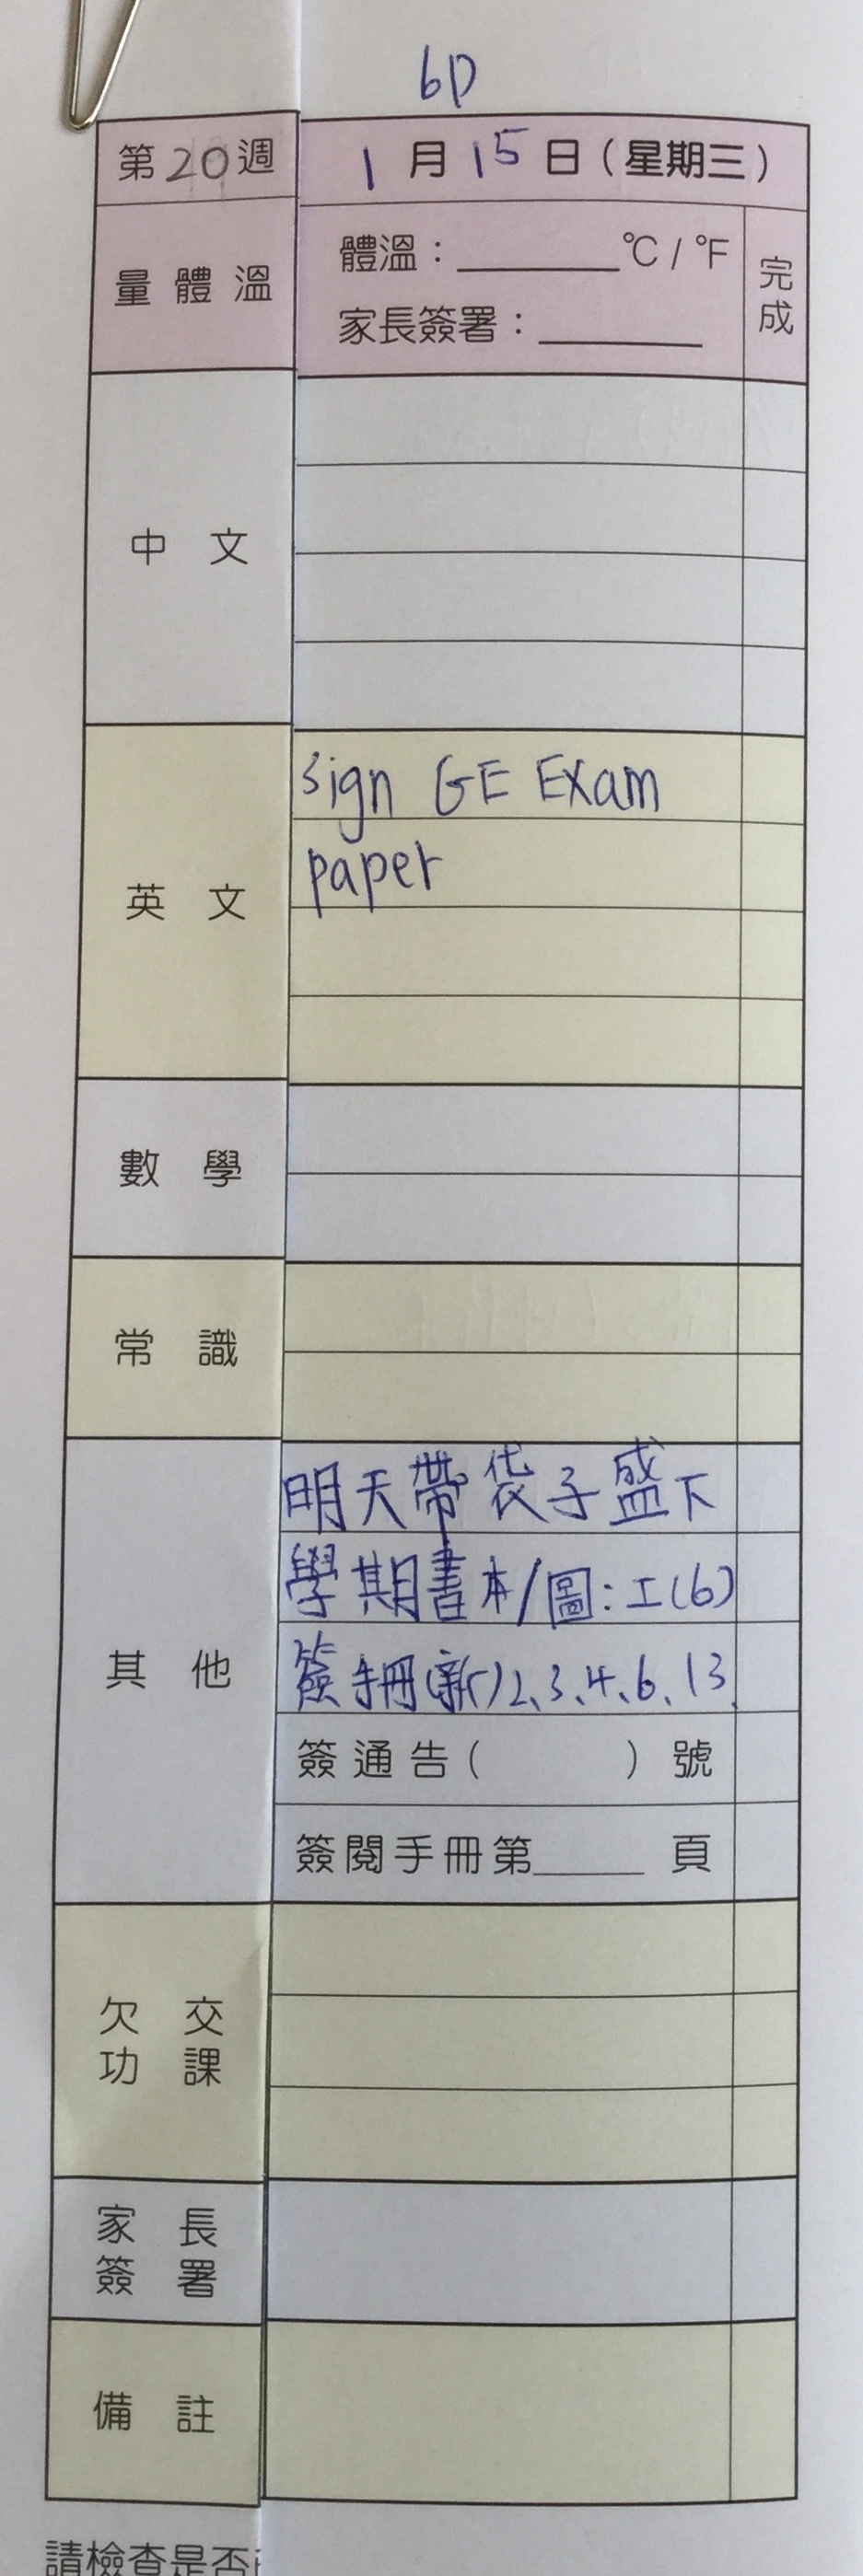 6D
第20週 1月15日(星期三)
量體溫 體溫:______°C / °F
家長簽署:______
完成
中文
英文 sign GE Exam
paper
數學
常識
其他 明天帶袋子盛下
學期書本/圖:工(6)
簽手冊(新)2、3、4、6、13
簽通告( )號
簽閱手冊第____頁
欠交
功課
家長
簽署
備註
請檢查是否